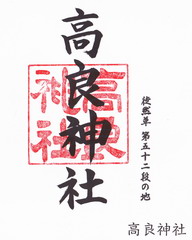 高良神社
徒然草 第五十二段の地
高良神社
高良神社